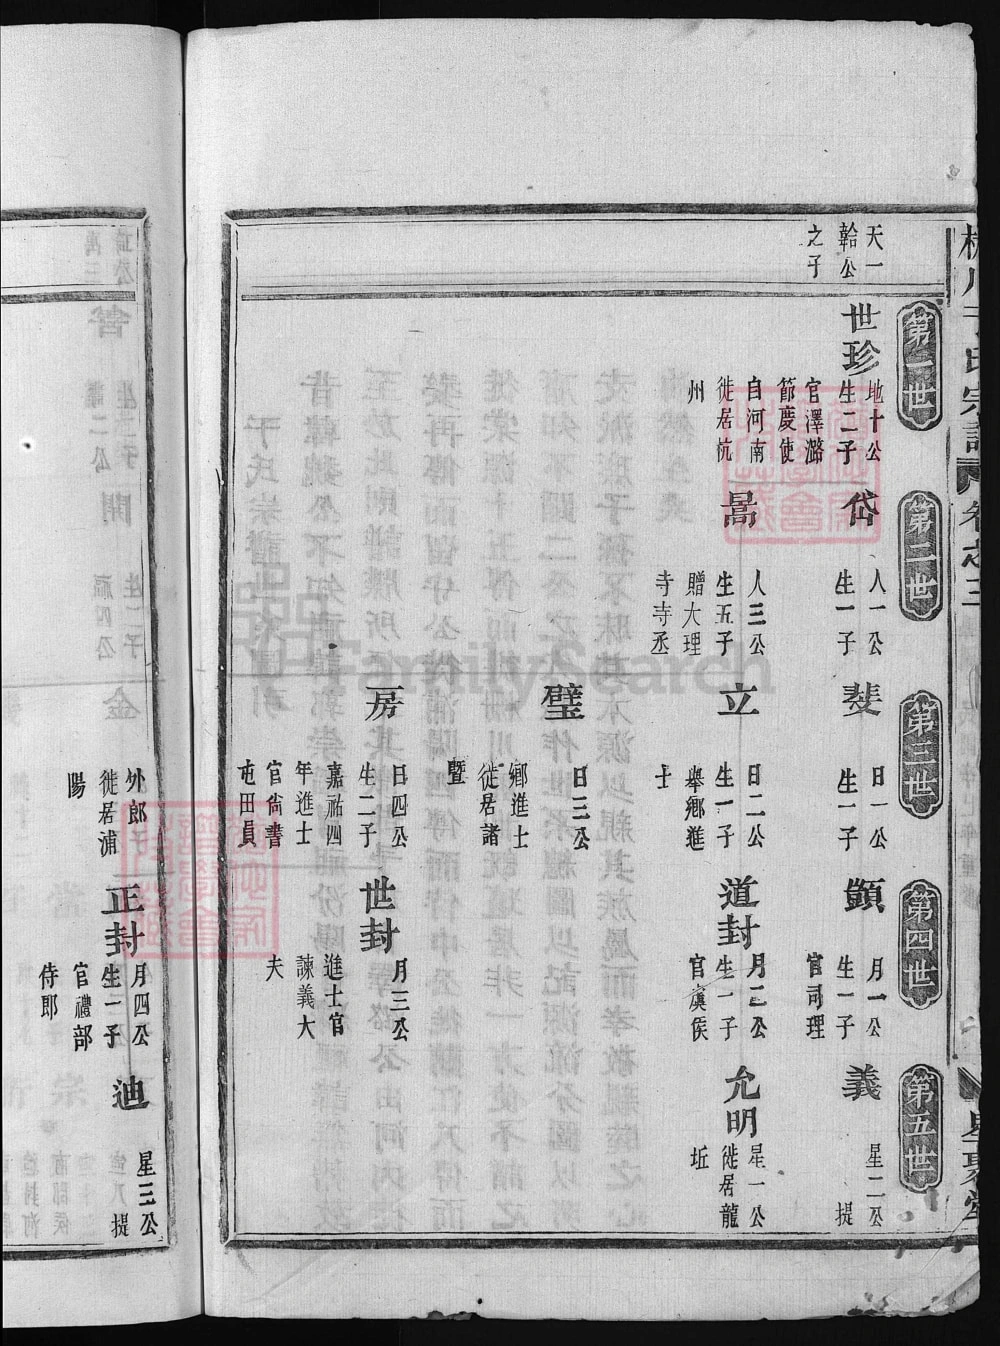 于氏宗譜 卷之三
星聚堂
第一世
第二世
第三世
第四世
第五世
天一
公
之子
世珍
地十公
生二子
官澤潞
節慶使
自河南
徙居杭
州
岱
人一公
生一子
暠
人三公
生五子
贈大理
寺寺丞
斐
日一公
生一子
立
日二公
生一子
舉鄉進
士
璧
日三公
鄉進士
徙居諸
暨
房
日四公
生二子
嘉祐四
年進士
官尚書
屯田員
顗
月一公
生一子
官司理
道封
月二公
生一子
官虞侯
世封
月三公
進士官
諫義大
夫
義
星二公
提
允明
星一公
徙居龍
坵
外郎
徙居浦
陽
正封
月四公
生一子
官禮部
侍郎
迪
星三公
提
FamilySearch